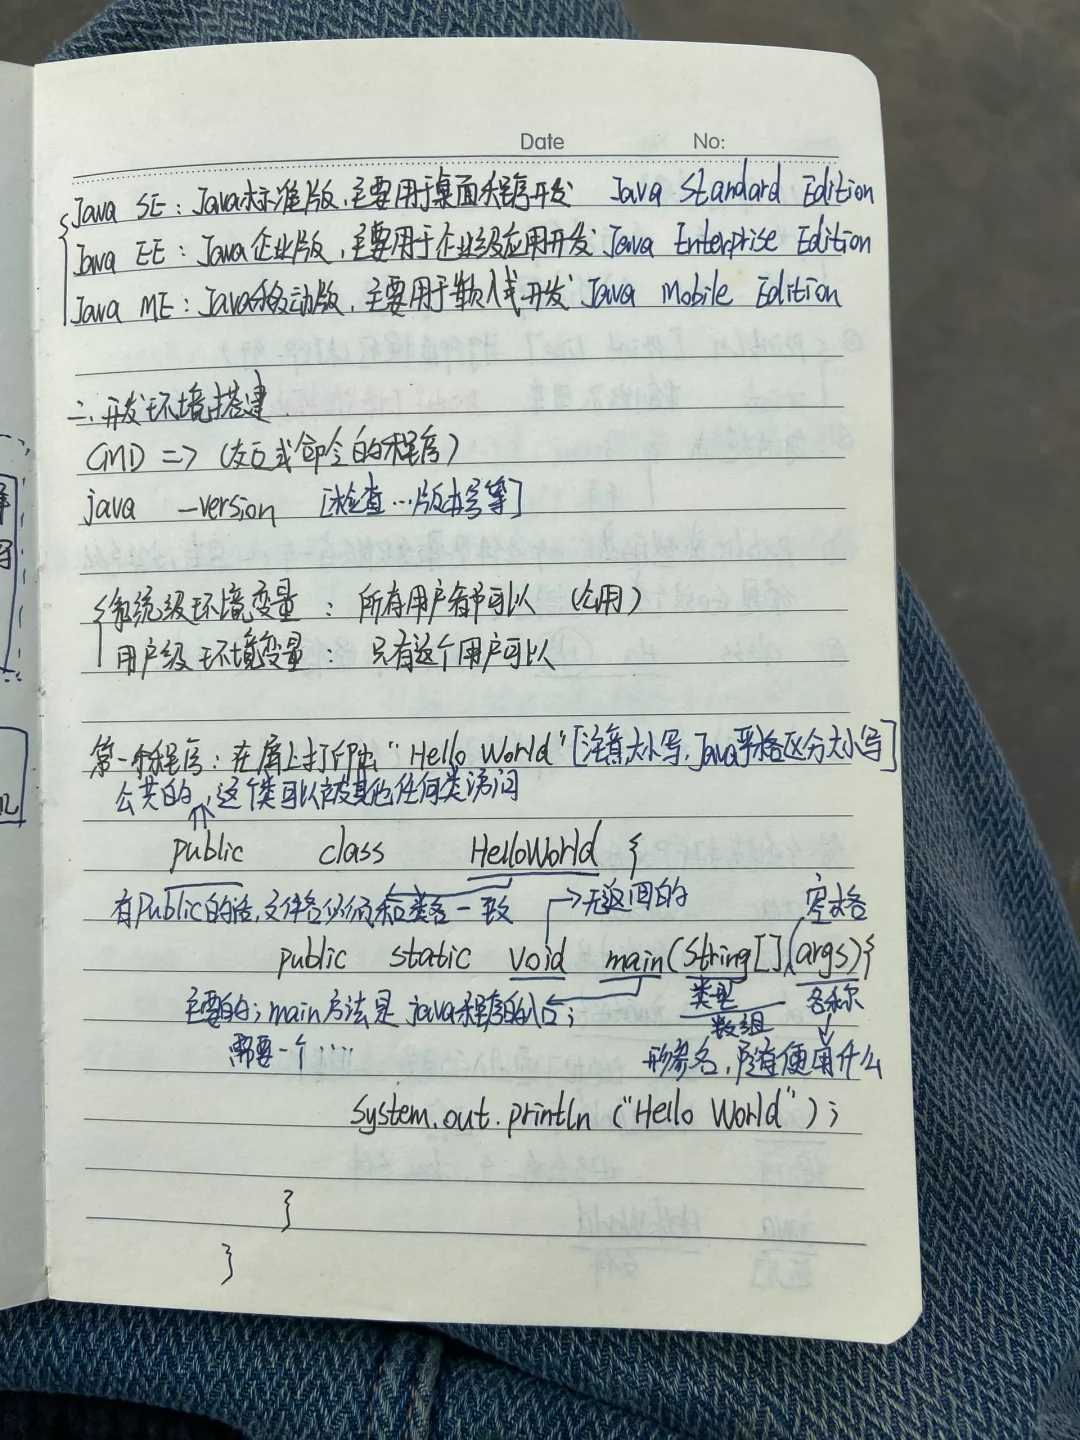 Date No:
Java SE：Java标准版，主要用于桌面程序开发 Java Standard Edition
Java EE：Java企业版，主要用于企业级应用开发 Java Enterprise Edition
Java ME：Java移动版，主要用于软入式开发 Java Mobile Edition
二、开发环境搭建
CMD => （交互式命令的程序）
java -version [检查…版本号等]
系统级环境变量：所有用户都可以（公用）
用户级环境变量：只有这个用户可以
第一个程序：在屏上打印出“Hello World”[注意大小写，Java严格区分大小写]
公共的，这个类可以被其他任何类访问
public class HelloWorld {
有public的话，文件名必须和类名一致 →无返回的 空格
public static void main(String[] args){
主要的；main方法是java程序的入口； 类型 名称
数组
需要一个…… 形参名，随便用什么
System.out.println（“Hello World”）；
}
}